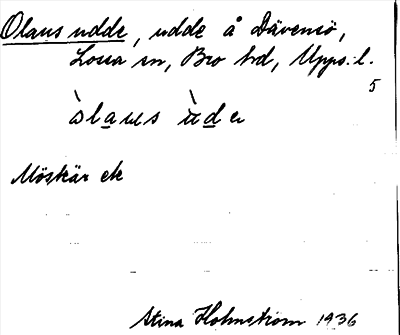 Olaus udde, udde å Dävensö,
Lossa sn, Bro hd, Upps. l.
5
òlaus ùdev
Möskär ek
Stina Holmström 1936